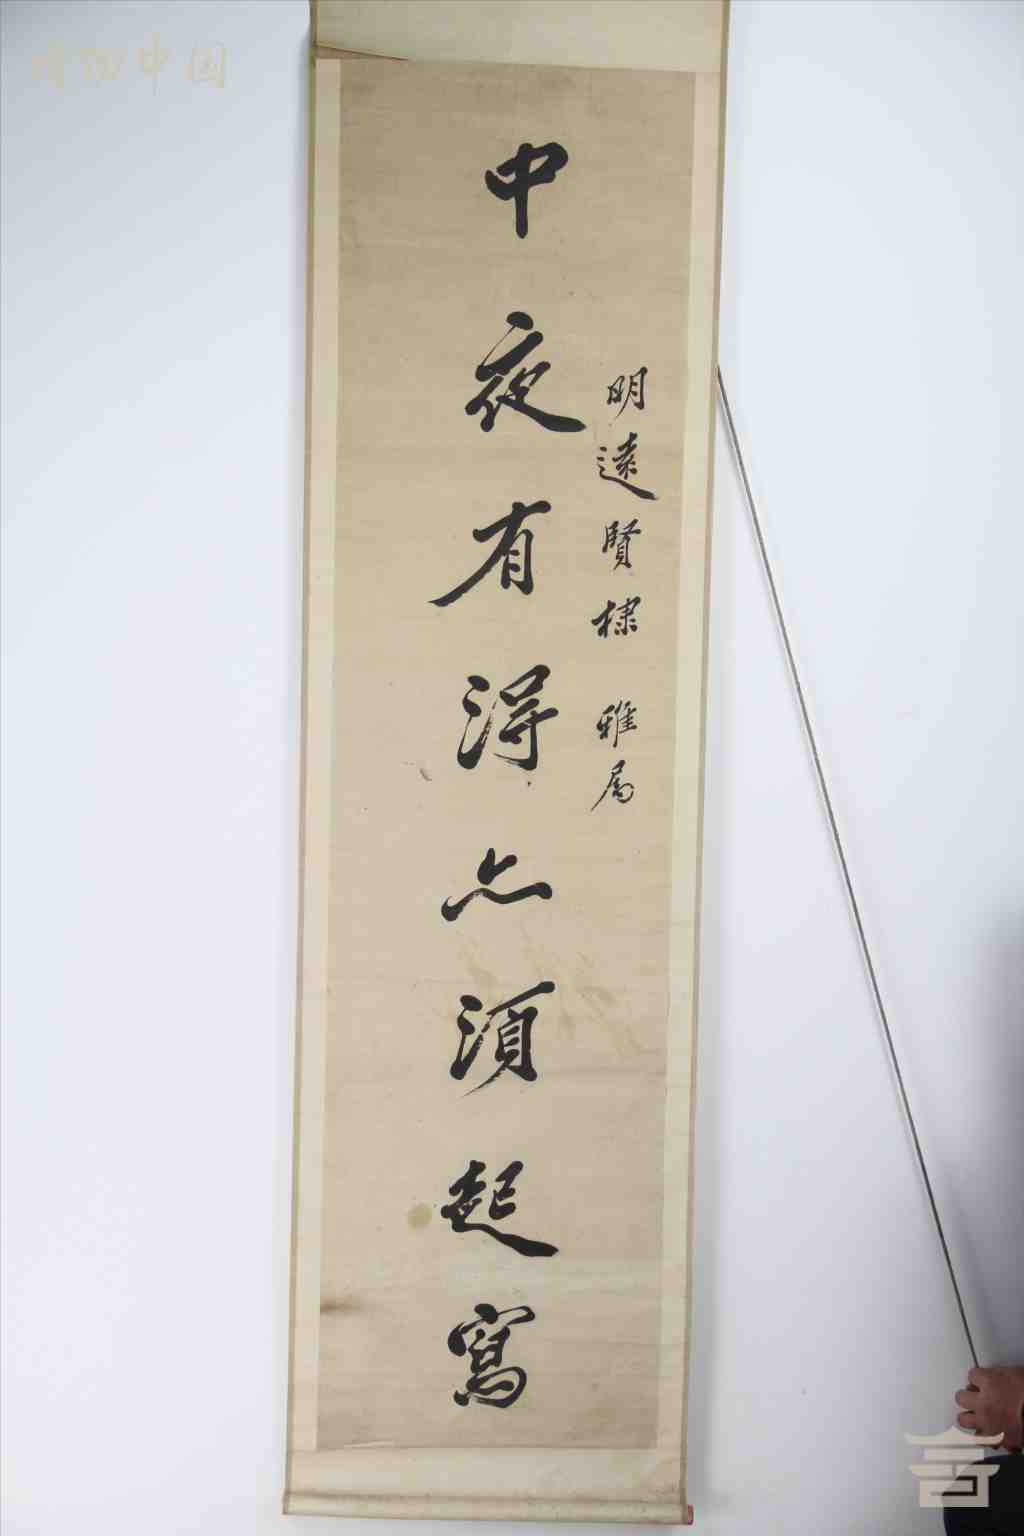 中国
明遠賢棣 雅屬
中夜有得亦須起寫